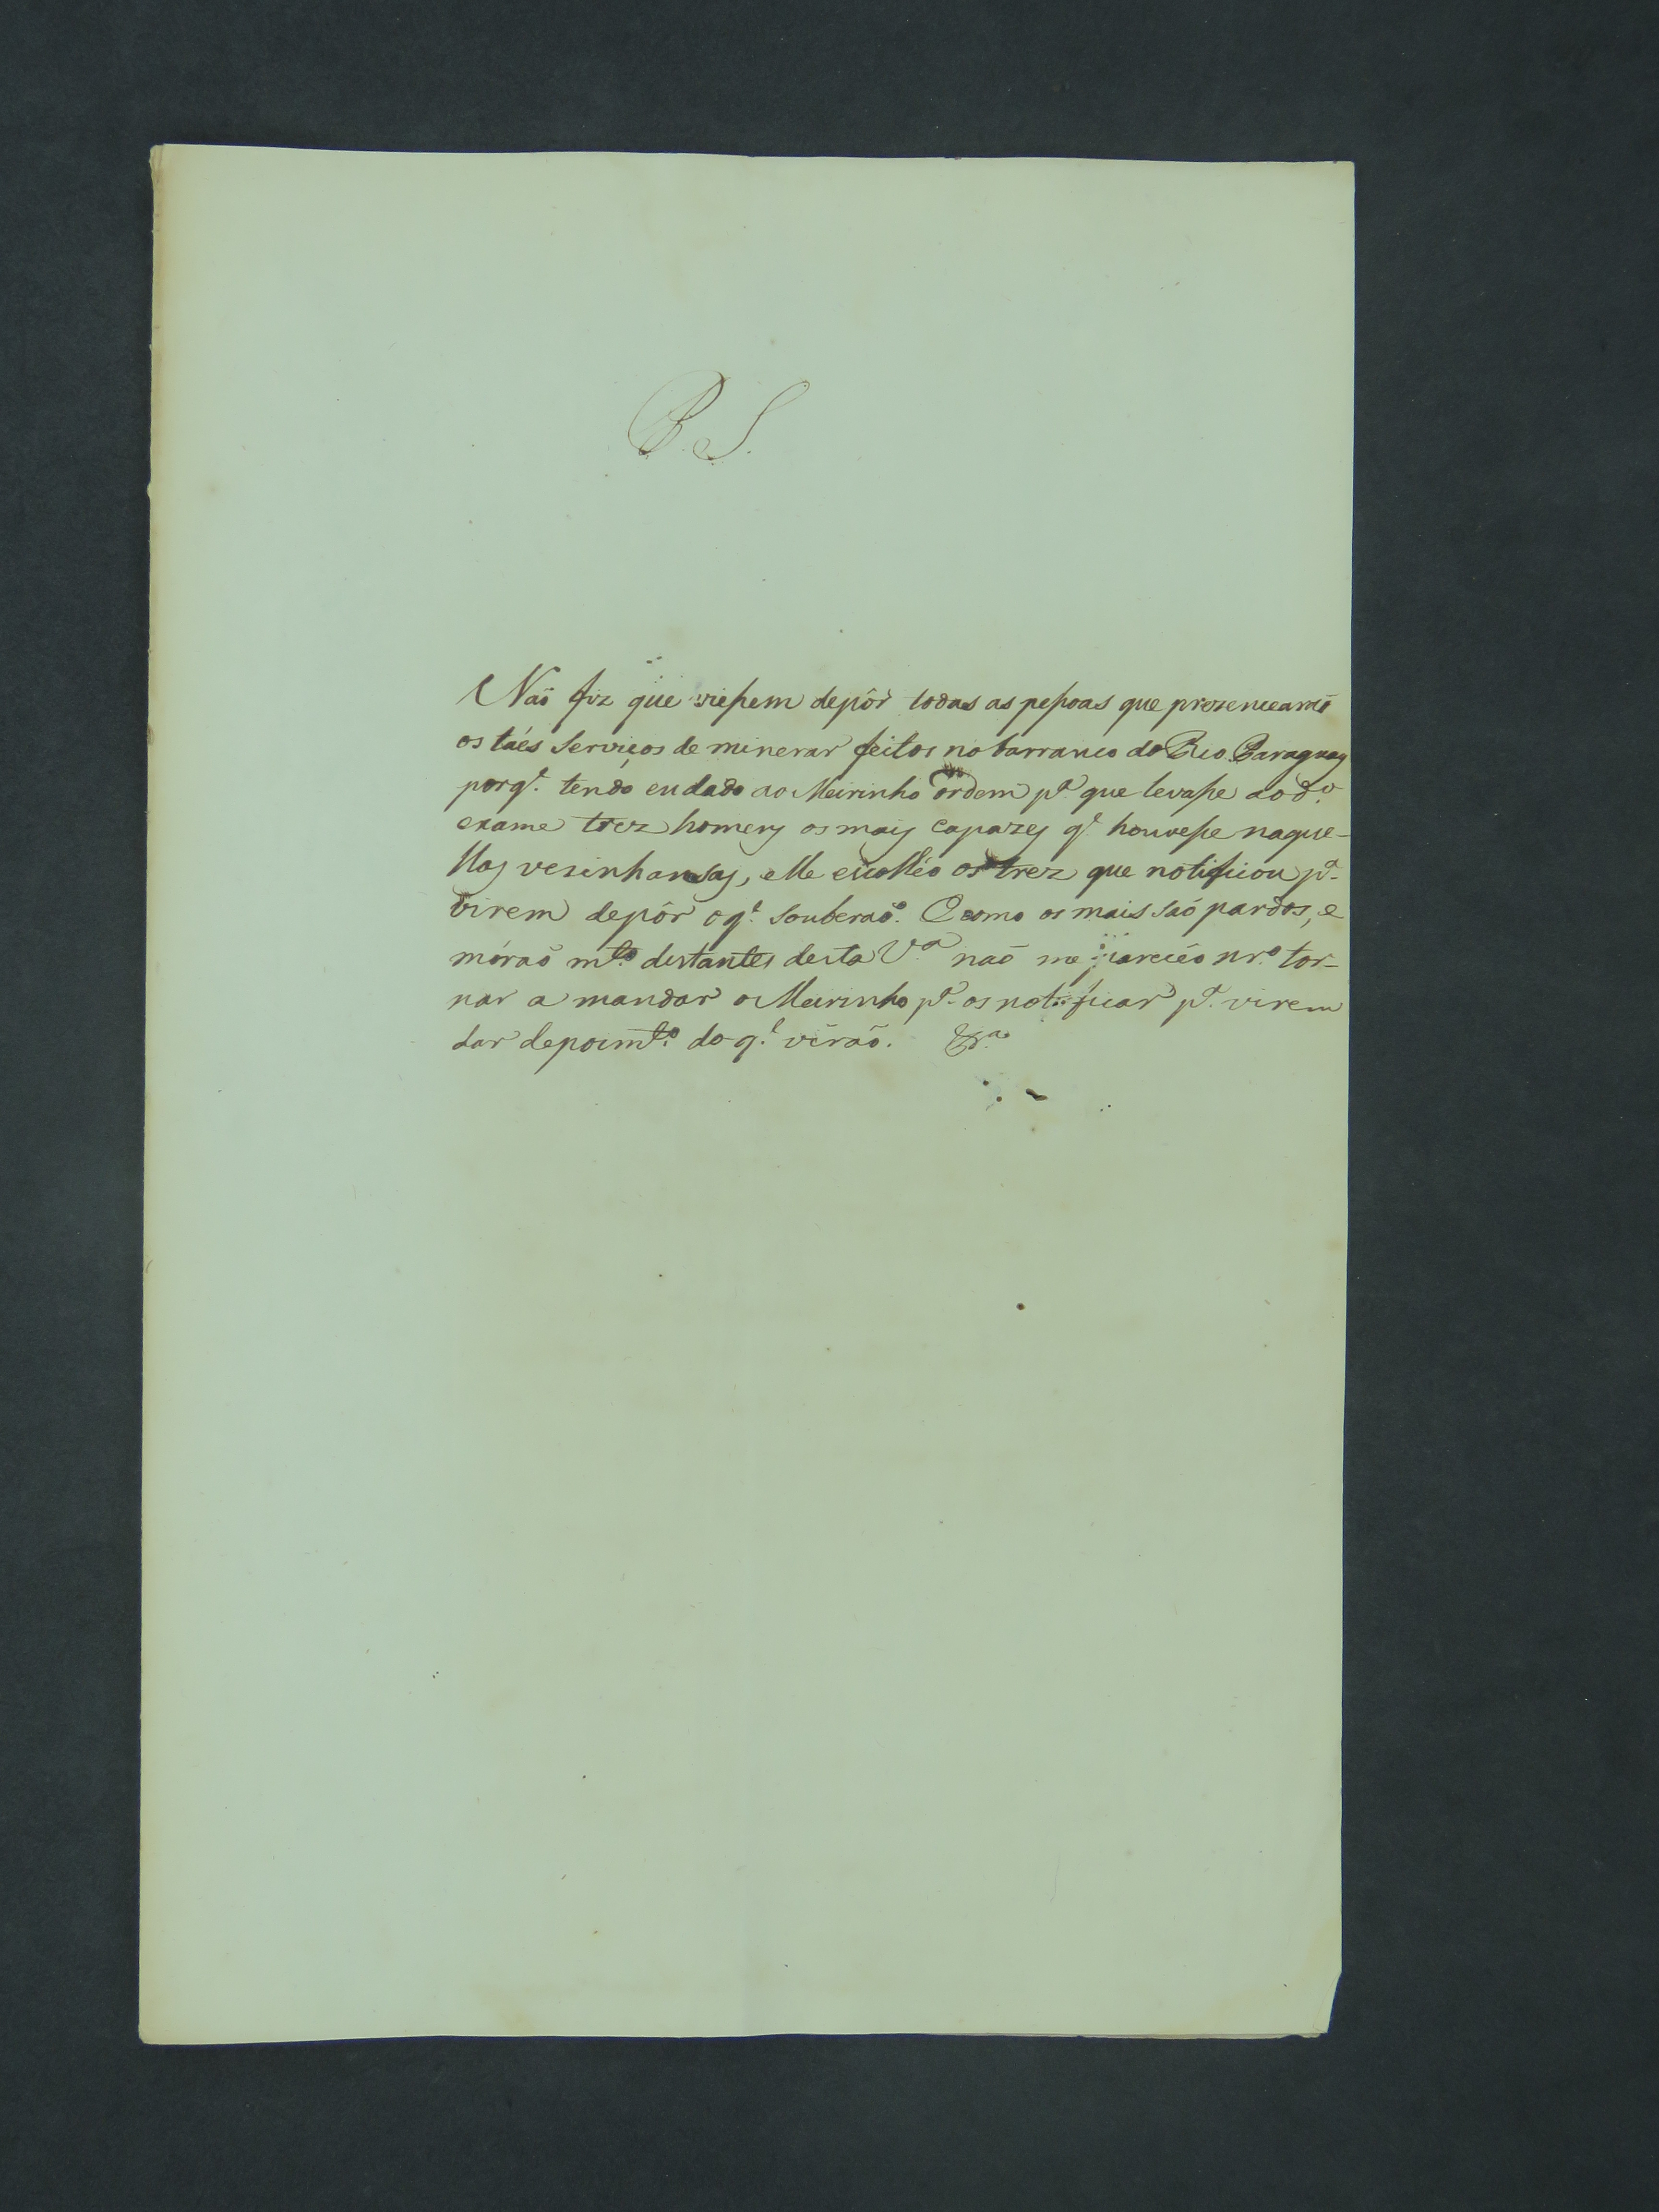 P. S.
Naõ fiz que viessem depôr todas as pessoas que prezenciaraõ
os táes Serviços de minerar feitos no barranco do Rio Paraguay
porq.e tendo eu dado ao Meirinho ordem p.a que levasse ao d.o
exame trez homens os mais capazes q.e houvesse naque-
llas vezinhansas, elle escolhêo os trez que notificou p.a
virem depôr o q.e souberaõ. E como os mais saõ pardos, e
móraõ m.to distantes desta V.a naõ me parecêo nr.o tor-
nar a mandar o Meirinho p.a os notificar p.a virem
dar depoim.to do q.e vîraõ. &.a